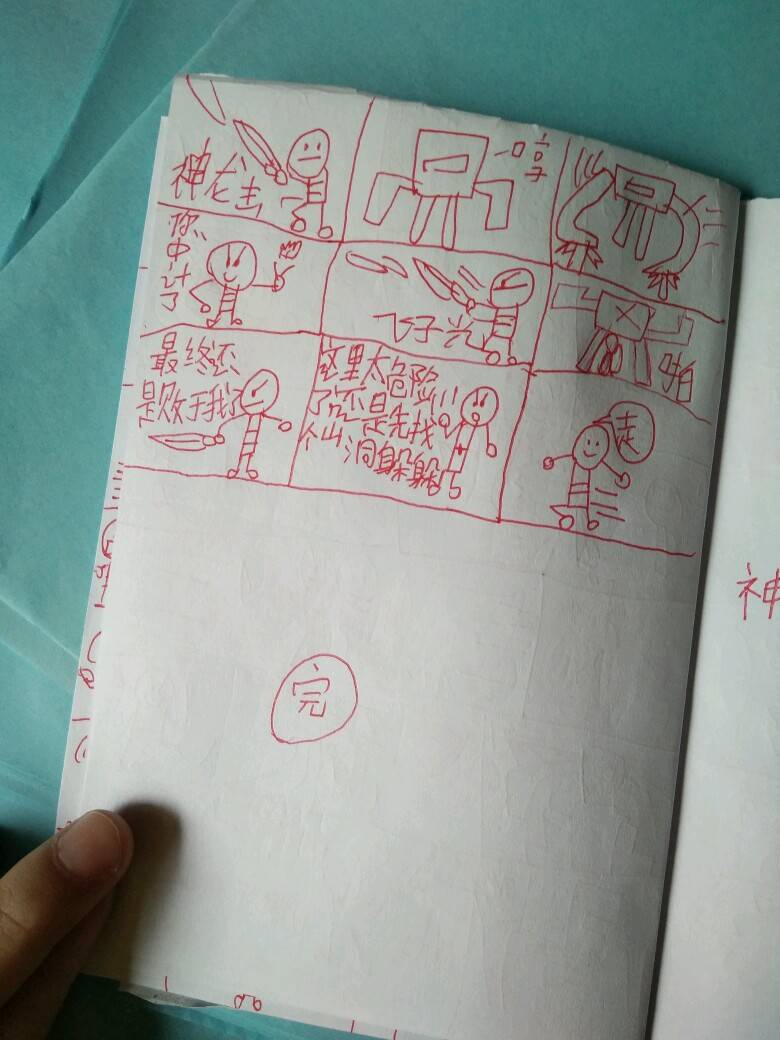 神龙
哼
你中计了
飞子光
啪
最终还
是败于我了
这里太危险!!
了还是先找
个山洞躲躲
走
完
神